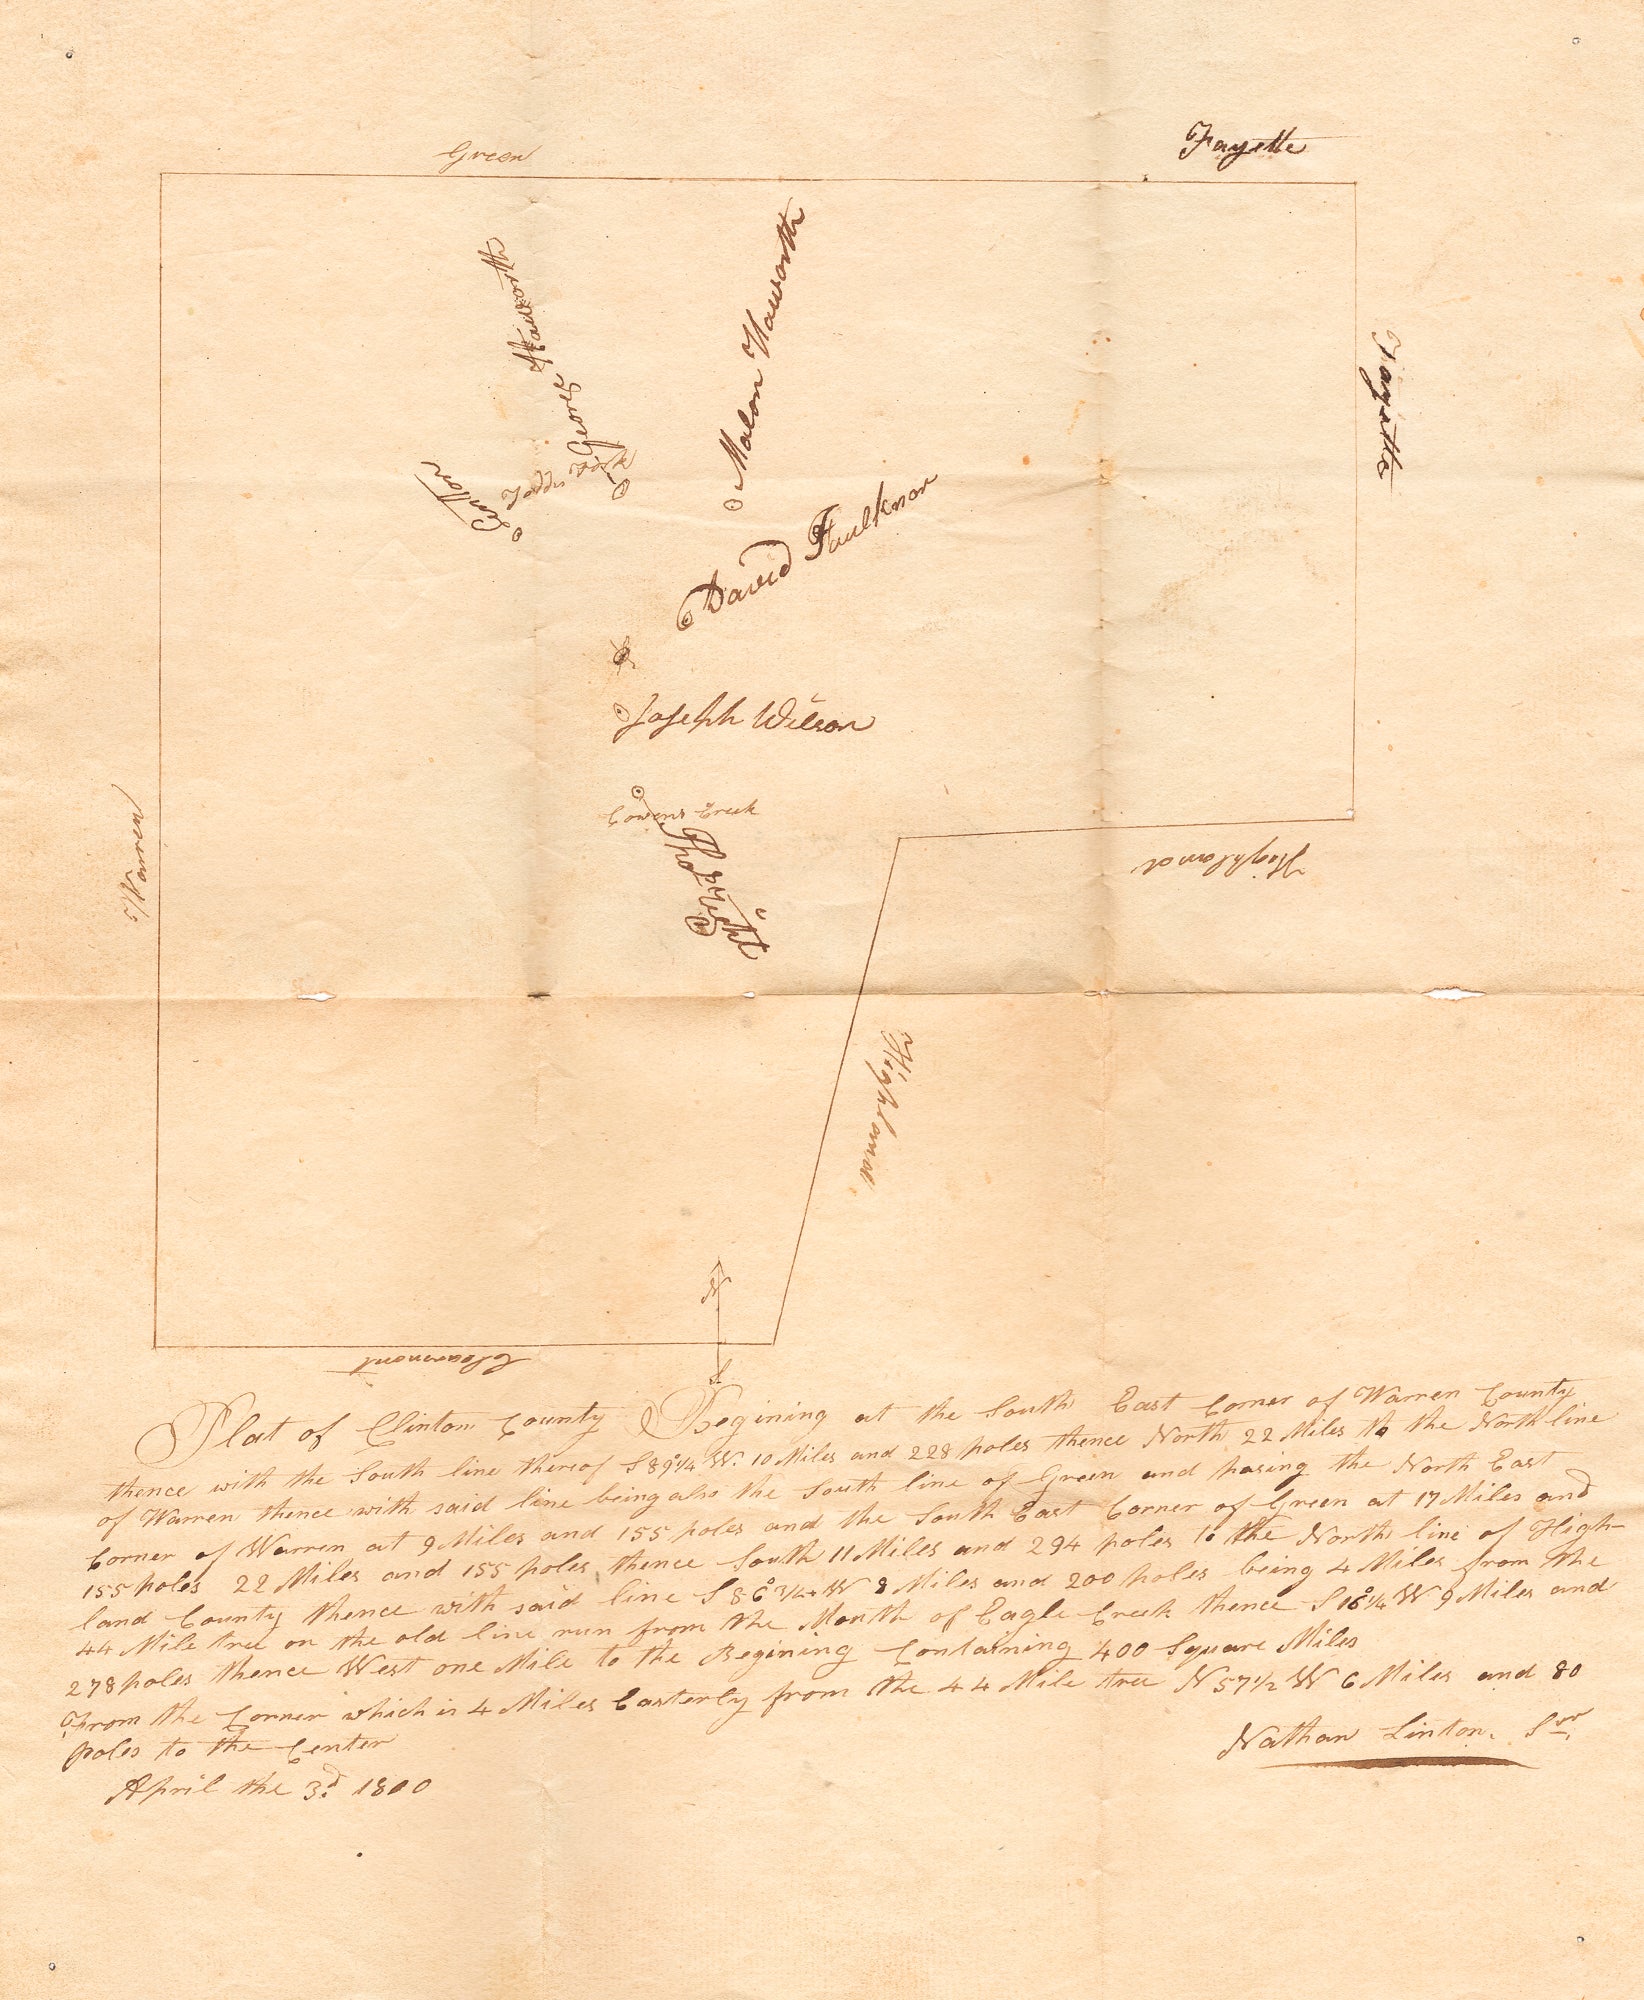 Green
Fayette
Fayette
George Haworth
Malon Haworth
Linton
Todds Fork
David Faulknor
Joseph Wilson
Cowens Creek
Warren
Highland
Highland
N
S
Clearmont
Plat of Clinton County Begining at the South East Corner of Warren County
thence with the South line thereof S 89°1/4 W. 10 Miles and 228 poles thence North 22 Miles to the North line
of Warren thence with said line being also the South line of Green and passing the North East
Corner of Warren at 9 Miles and 155 poles and the South East Corner of Green at 17 Miles and
155 poles 22 Miles and 155 poles thence South 11 Miles and 294 poles to the North line of High-
land County thence with said line S 86°3/4 W 8 Miles and 200 poles being 4 Miles from the
44 Mile tree on the old line run from the Mouth of Eagle Creek thence S 16°1/4 W 9 Miles and
278 poles thence West one Mile to the Begining Containing 400 Square Miles
From the Corner which is 4 Miles Easterly from the 44 Mile tree N 57 1/2 W 6 Miles and 80
poles to the Center
Nathan Linton. Svr.
April the 3d 1810